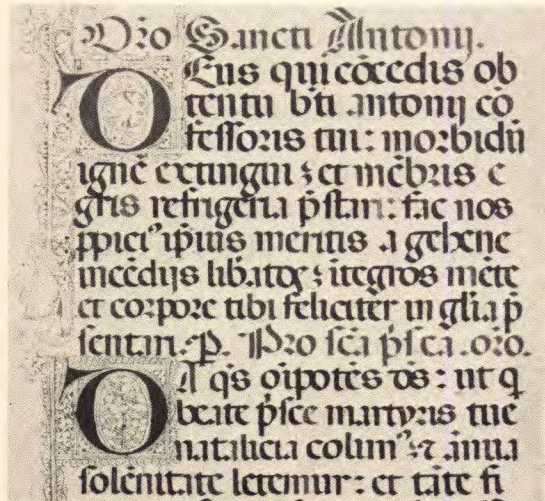 Oro Sancti Antonij.
DEus qui cōcedis ob
tentu bti antonij cō
fessoris tui: morbidū
ignē extingui ⁊ et mēbris e
gris refrigeria p̄stari: fac nos
ppicius ipsius meritis a gehene
incēdijs libatos ⁊ itegros mēte
et corpore tibi feliciter in gl̄ia p̄
sentari. P. Pro scā p̄sca. oro.
DA qs oīpotēs ds: ut q
beate p̄sce martyris tue
natalicia colimus ⁊ annua
solēnitate letemur: et tāte fi